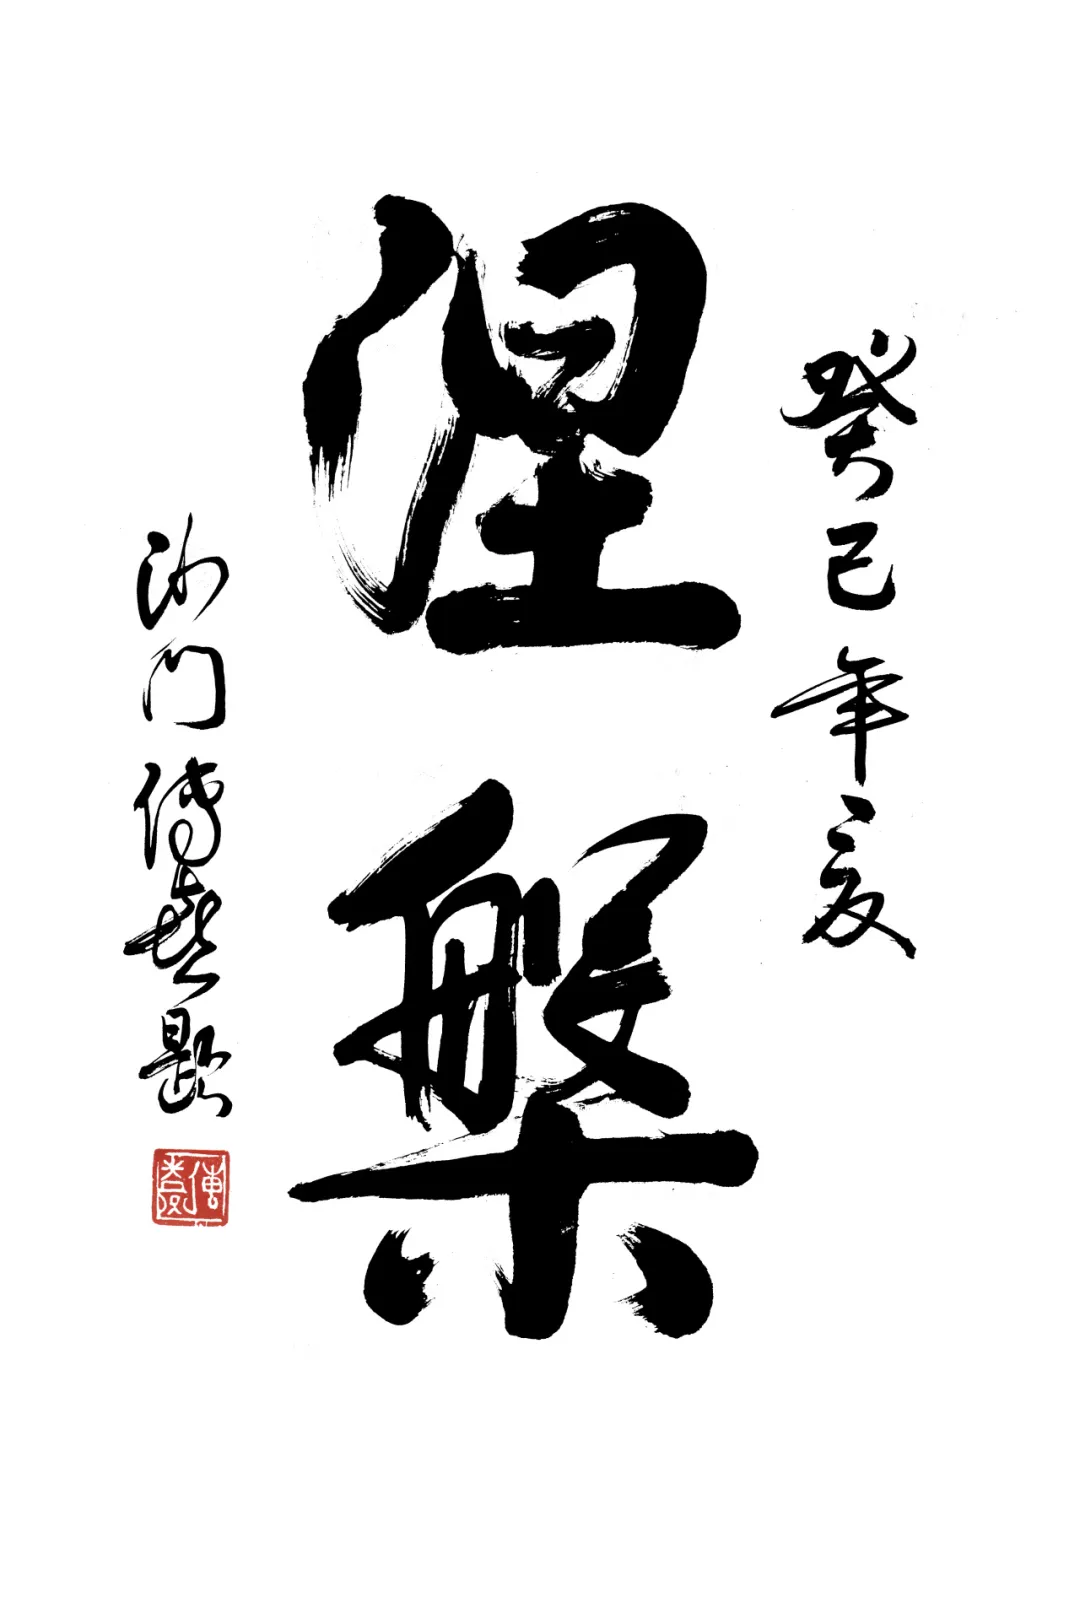 癸巳年夏
涅槃
沙门傳喜题